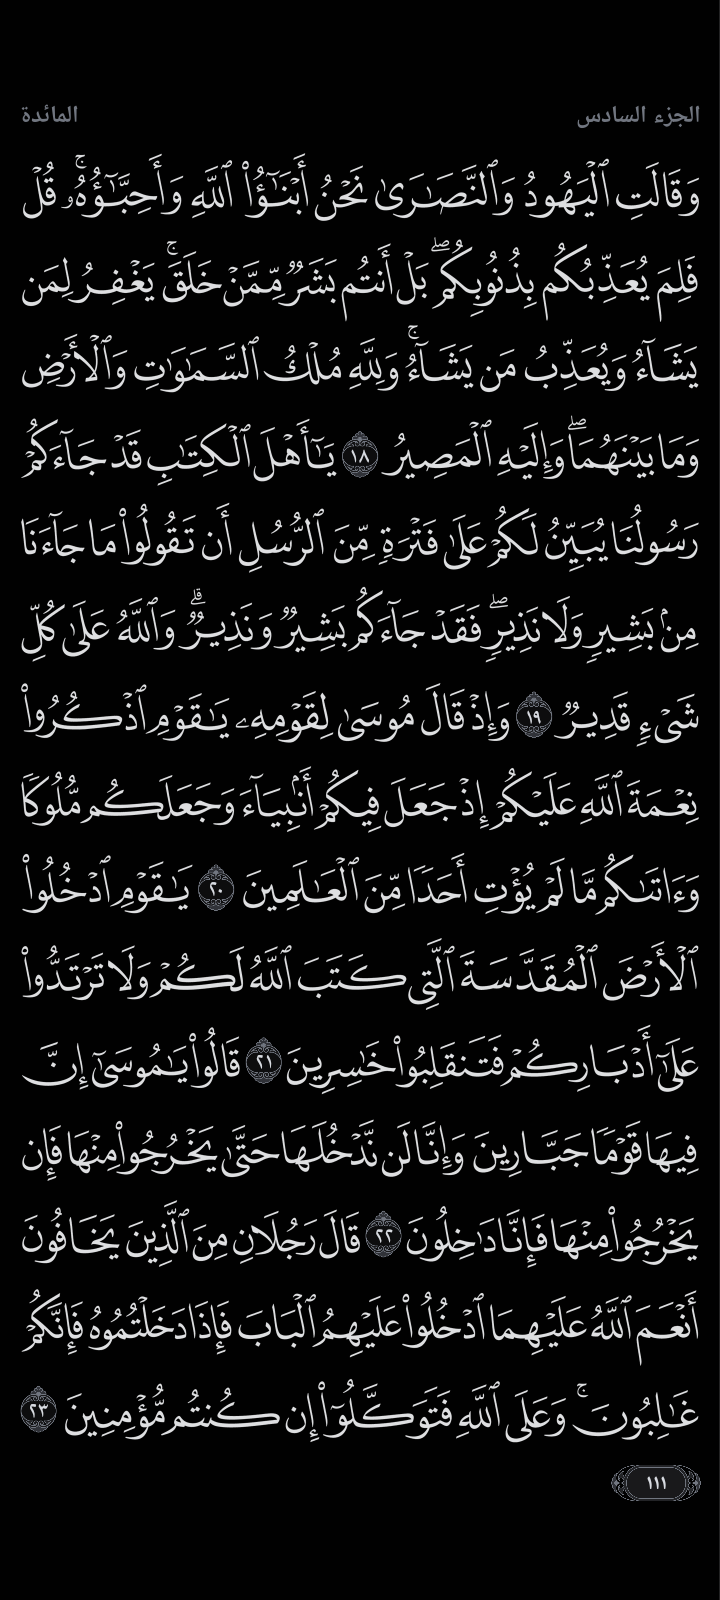 الجزء السادس
المائدة
وَقَالَتِ ٱلۡيَهُودُ وَٱلنَّصَٰرَىٰ نَحۡنُ أَبۡنَٰٓؤُاْ ٱللَّهِ وَأَحِبَّٰٓؤُهُۥۚ قُلۡ
فَلِمَ يُعَذِّبُكُم بِذُنُوبِكُمۖ بَلۡ أَنتُم بَشَرٞ مِّمَّنۡ خَلَقَۚ يَغۡفِرُ لِمَن
يَشَآءُ وَيُعَذِّبُ مَن يَشَآءُۚ وَلِلَّهِ مُلۡكُ ٱلسَّمَٰوَٰتِ وَٱلۡأَرۡضِ
وَمَا بَيۡنَهُمَاۖ وَإِلَيۡهِ ٱلۡمَصِيرُ ١٨ يَٰٓأَهۡلَ ٱلۡكِتَٰبِ قَدۡ جَآءَكُمۡ
رَسُولُنَا يُبَيِّنُ لَكُمۡ عَلَىٰ فَتۡرَةٖ مِّنَ ٱلرُّسُلِ أَن تَقُولُواْ مَا جَآءَنَا
مِنۢ بَشِيرٖ وَلَا نَذِيرٖۖ فَقَدۡ جَآءَكُم بَشِيرٞ وَنَذِيرٞۗ وَٱللَّهُ عَلَىٰ كُلِّ
شَيۡءٖ قَدِيرٞ ١٩ وَإِذۡ قَالَ مُوسَىٰ لِقَوۡمِهِۦ يَٰقَوۡمِ ٱذۡكُرُواْ
نِعۡمَةَ ٱللَّهِ عَلَيۡكُمۡ إِذۡ جَعَلَ فِيكُمۡ أَنۢبِيَآءَ وَجَعَلَكُم مُّلُوكٗا
وَءَاتَىٰكُم مَّا لَمۡ يُؤۡتِ أَحَدٗا مِّنَ ٱلۡعَٰلَمِينَ ٢٠ يَٰقَوۡمِ ٱدۡخُلُواْ
ٱلۡأَرۡضَ ٱلۡمُقَدَّسَةَ ٱلَّتِي كَتَبَ ٱللَّهُ لَكُمۡ وَلَا تَرۡتَدُّواْ
عَلَىٰٓ أَدۡبَارِكُمۡ فَتَنقَلِبُواْ خَٰسِرِينَ ٢١ قَالُواْ يَٰمُوسَىٰٓ إِنَّ
فِيهَا قَوۡمٗا جَبَّارِينَ وَإِنَّا لَن نَّدۡخُلَهَا حَتَّىٰ يَخۡرُجُواْ مِنۡهَا فَإِن
يَخۡرُجُواْ مِنۡهَا فَإِنَّا دَٰخِلُونَ ٢٢ قَالَ رَجُلَانِ مِنَ ٱلَّذِينَ يَخَافُونَ
أَنۡعَمَ ٱللَّهُ عَلَيۡهِمَا ٱدۡخُلُواْ عَلَيۡهِمُ ٱلۡبَابَ فَإِذَا دَخَلۡتُمُوهُ فَإِنَّكُمۡ
غَٰلِبُونَۚ وَعَلَى ٱللَّهِ فَتَوَكَّلُوٓاْ إِن كُنتُم مُّؤۡمِنِينَ ٢٣
١١١